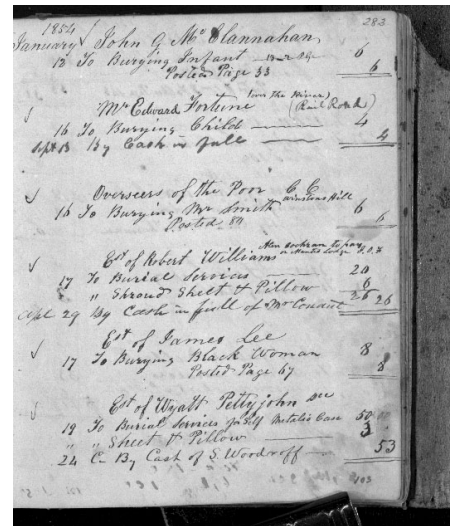 1854 283
January John G McClannahan
12 To Burying Infant 6
Posted Page 33 6
Mr Edward Fortune (over the River) (Rail Road)
16 To Burying Child 4
Sept 13 By Cash in full 4
Overseers of the Poor C C
16 To Burying Mr Smith Winstons Hill 6
Posted 84 6
Est of Robert Williams
17 To Burial Services 20
" Shroud Sheet & Pillow 6
Apl 29 By Cash in full of Mr Conant 26 26
Est of James Lee
17 To Burying Black Woman 8
Posted Page 67 8
Est of Wyatt Pettyjohn
19 To Burial Services for Self Metalic Case 50
" " Sheet & Pillow 3
24 Cr By Cash of S. Woodroff 53